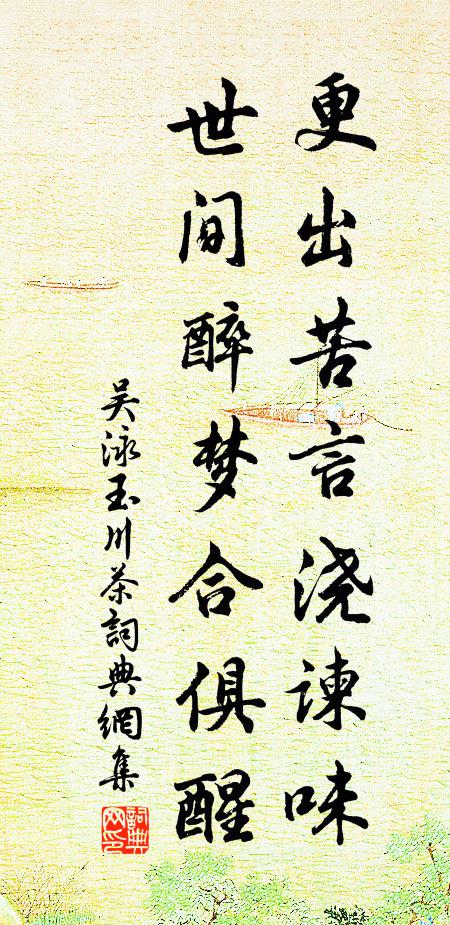 更出苦言浇谏味
世间醉梦合俱醒
吴泳玉川茶詞典網集
詞典網印